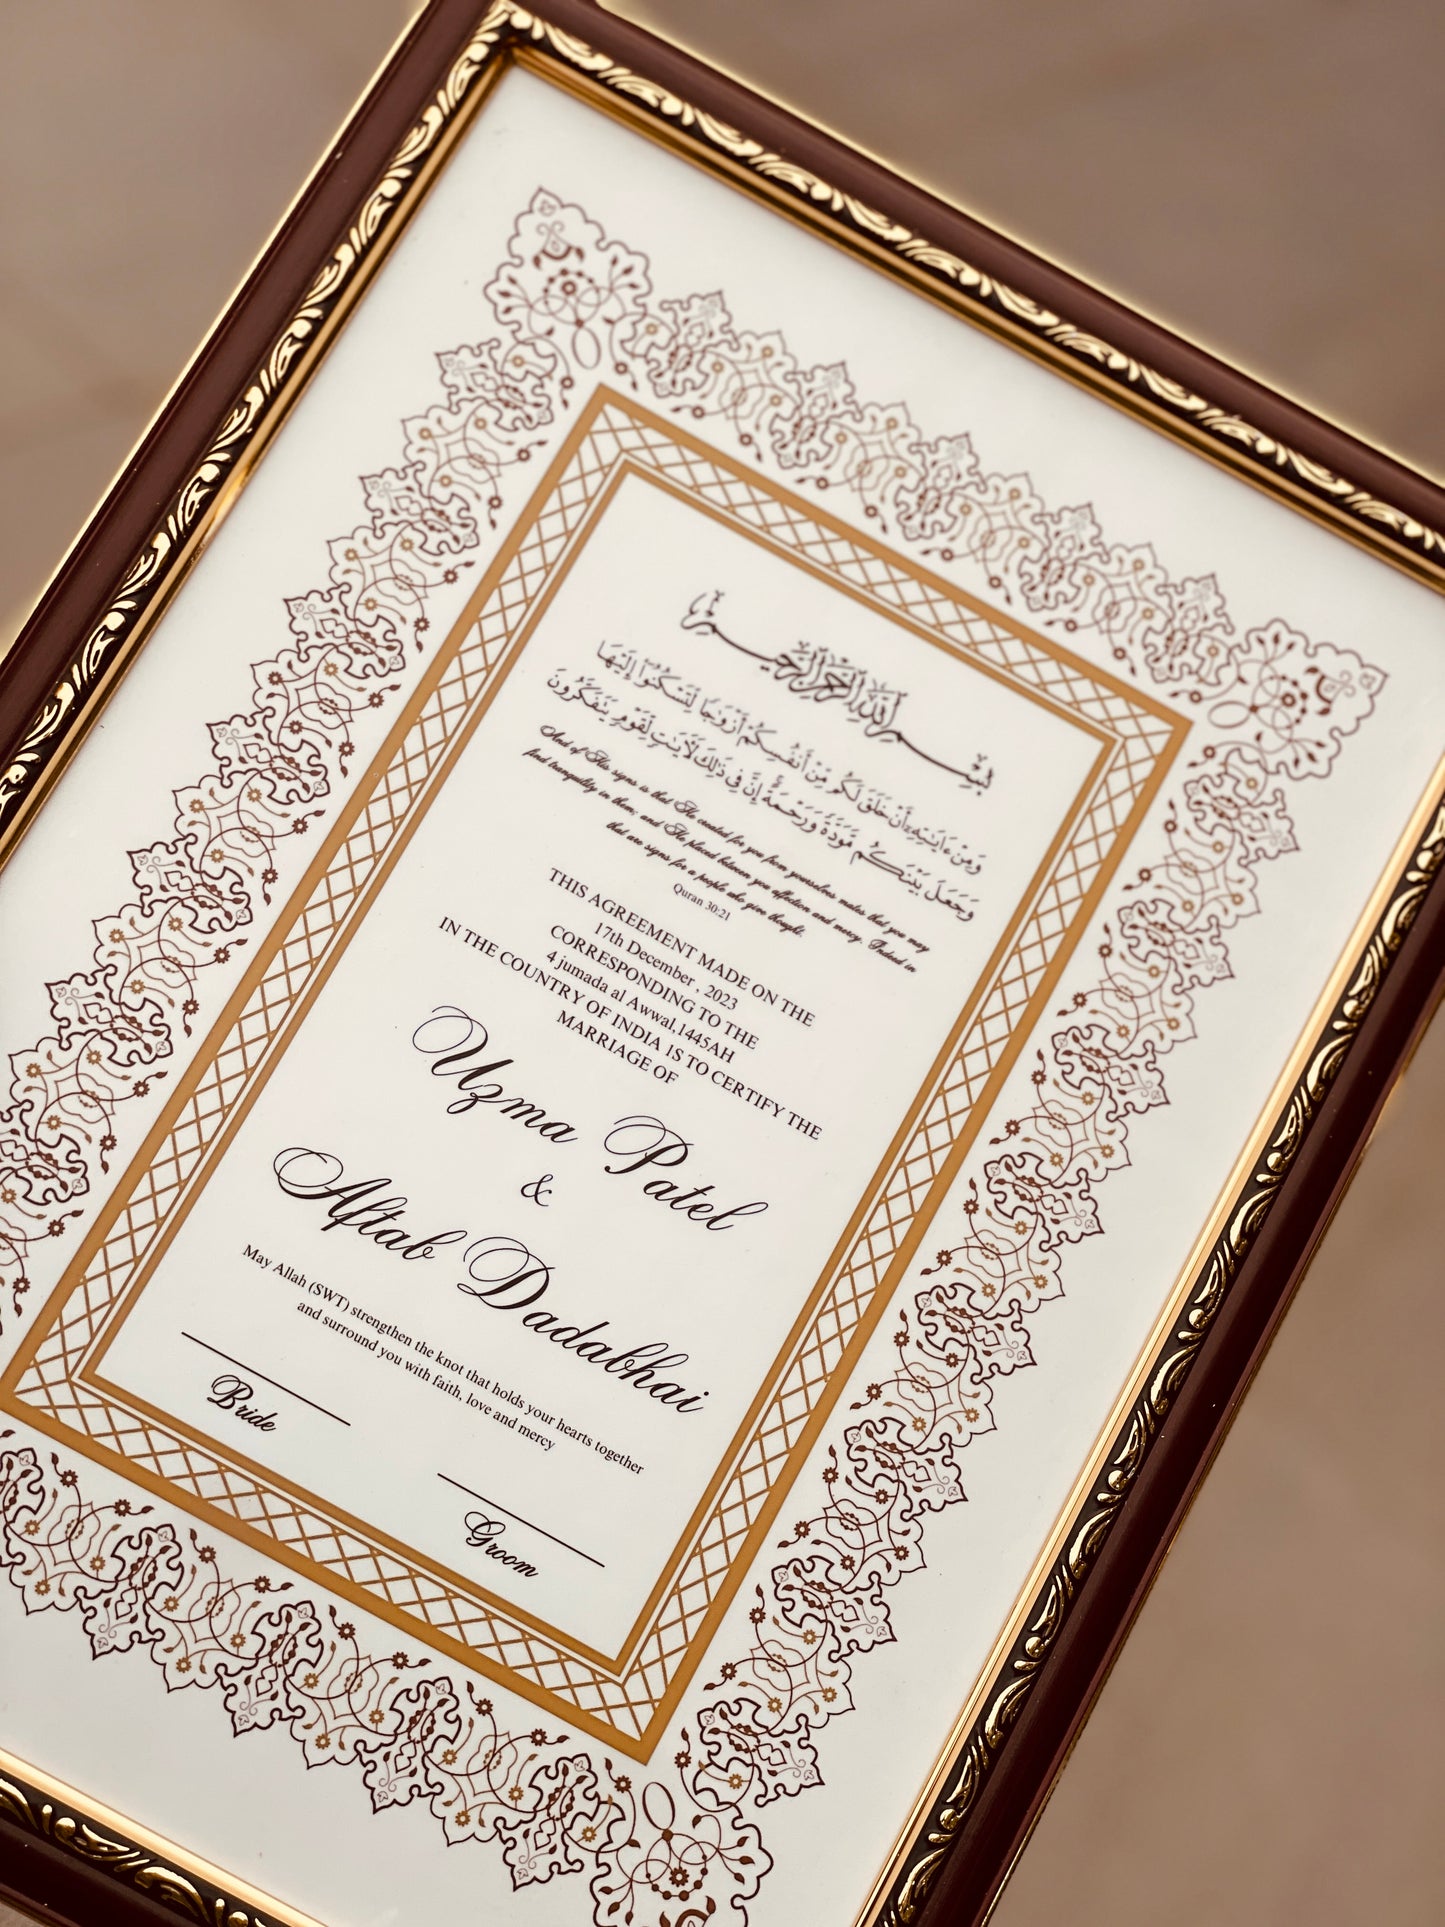 بسم الله الرحمن الرحيم
وَمِنْ ءَايَٰتِهِۦٓ أَنْ خَلَقَ لَكُم مِّنْ أَنفُسِكُمْ أَزْوَٰجًا لِّتَسْكُنُوٓا۟ إِلَيْهَا
وَجَعَلَ بَيْنَكُم مَّوَدَّةً وَرَحْمَةً إِنَّ فِى ذَٰلِكَ لَءَايَٰتٍ لِّقَوْمٍ يَتَفَكَّرُونَ
And of His signs is that He created for you from yourselves mates that you may
find tranquility in them; and He placed between you affection and mercy. Indeed in
that are signs for a people who give thought.
Quran 30:21
THIS AGREEMENT MADE ON THE
17th December , 2023
CORRESPONDING TO THE
4 jumada al Awwal,1445AH
IN THE COUNTRY OF INDIA IS TO CERTIFY THE
MARRIAGE OF
Uzma Patel
&
Aftab Dadabhai
May Allah (SWT) strengthen the knot that holds your hearts together
and surround you with faith, love and mercy
Bride
Groom